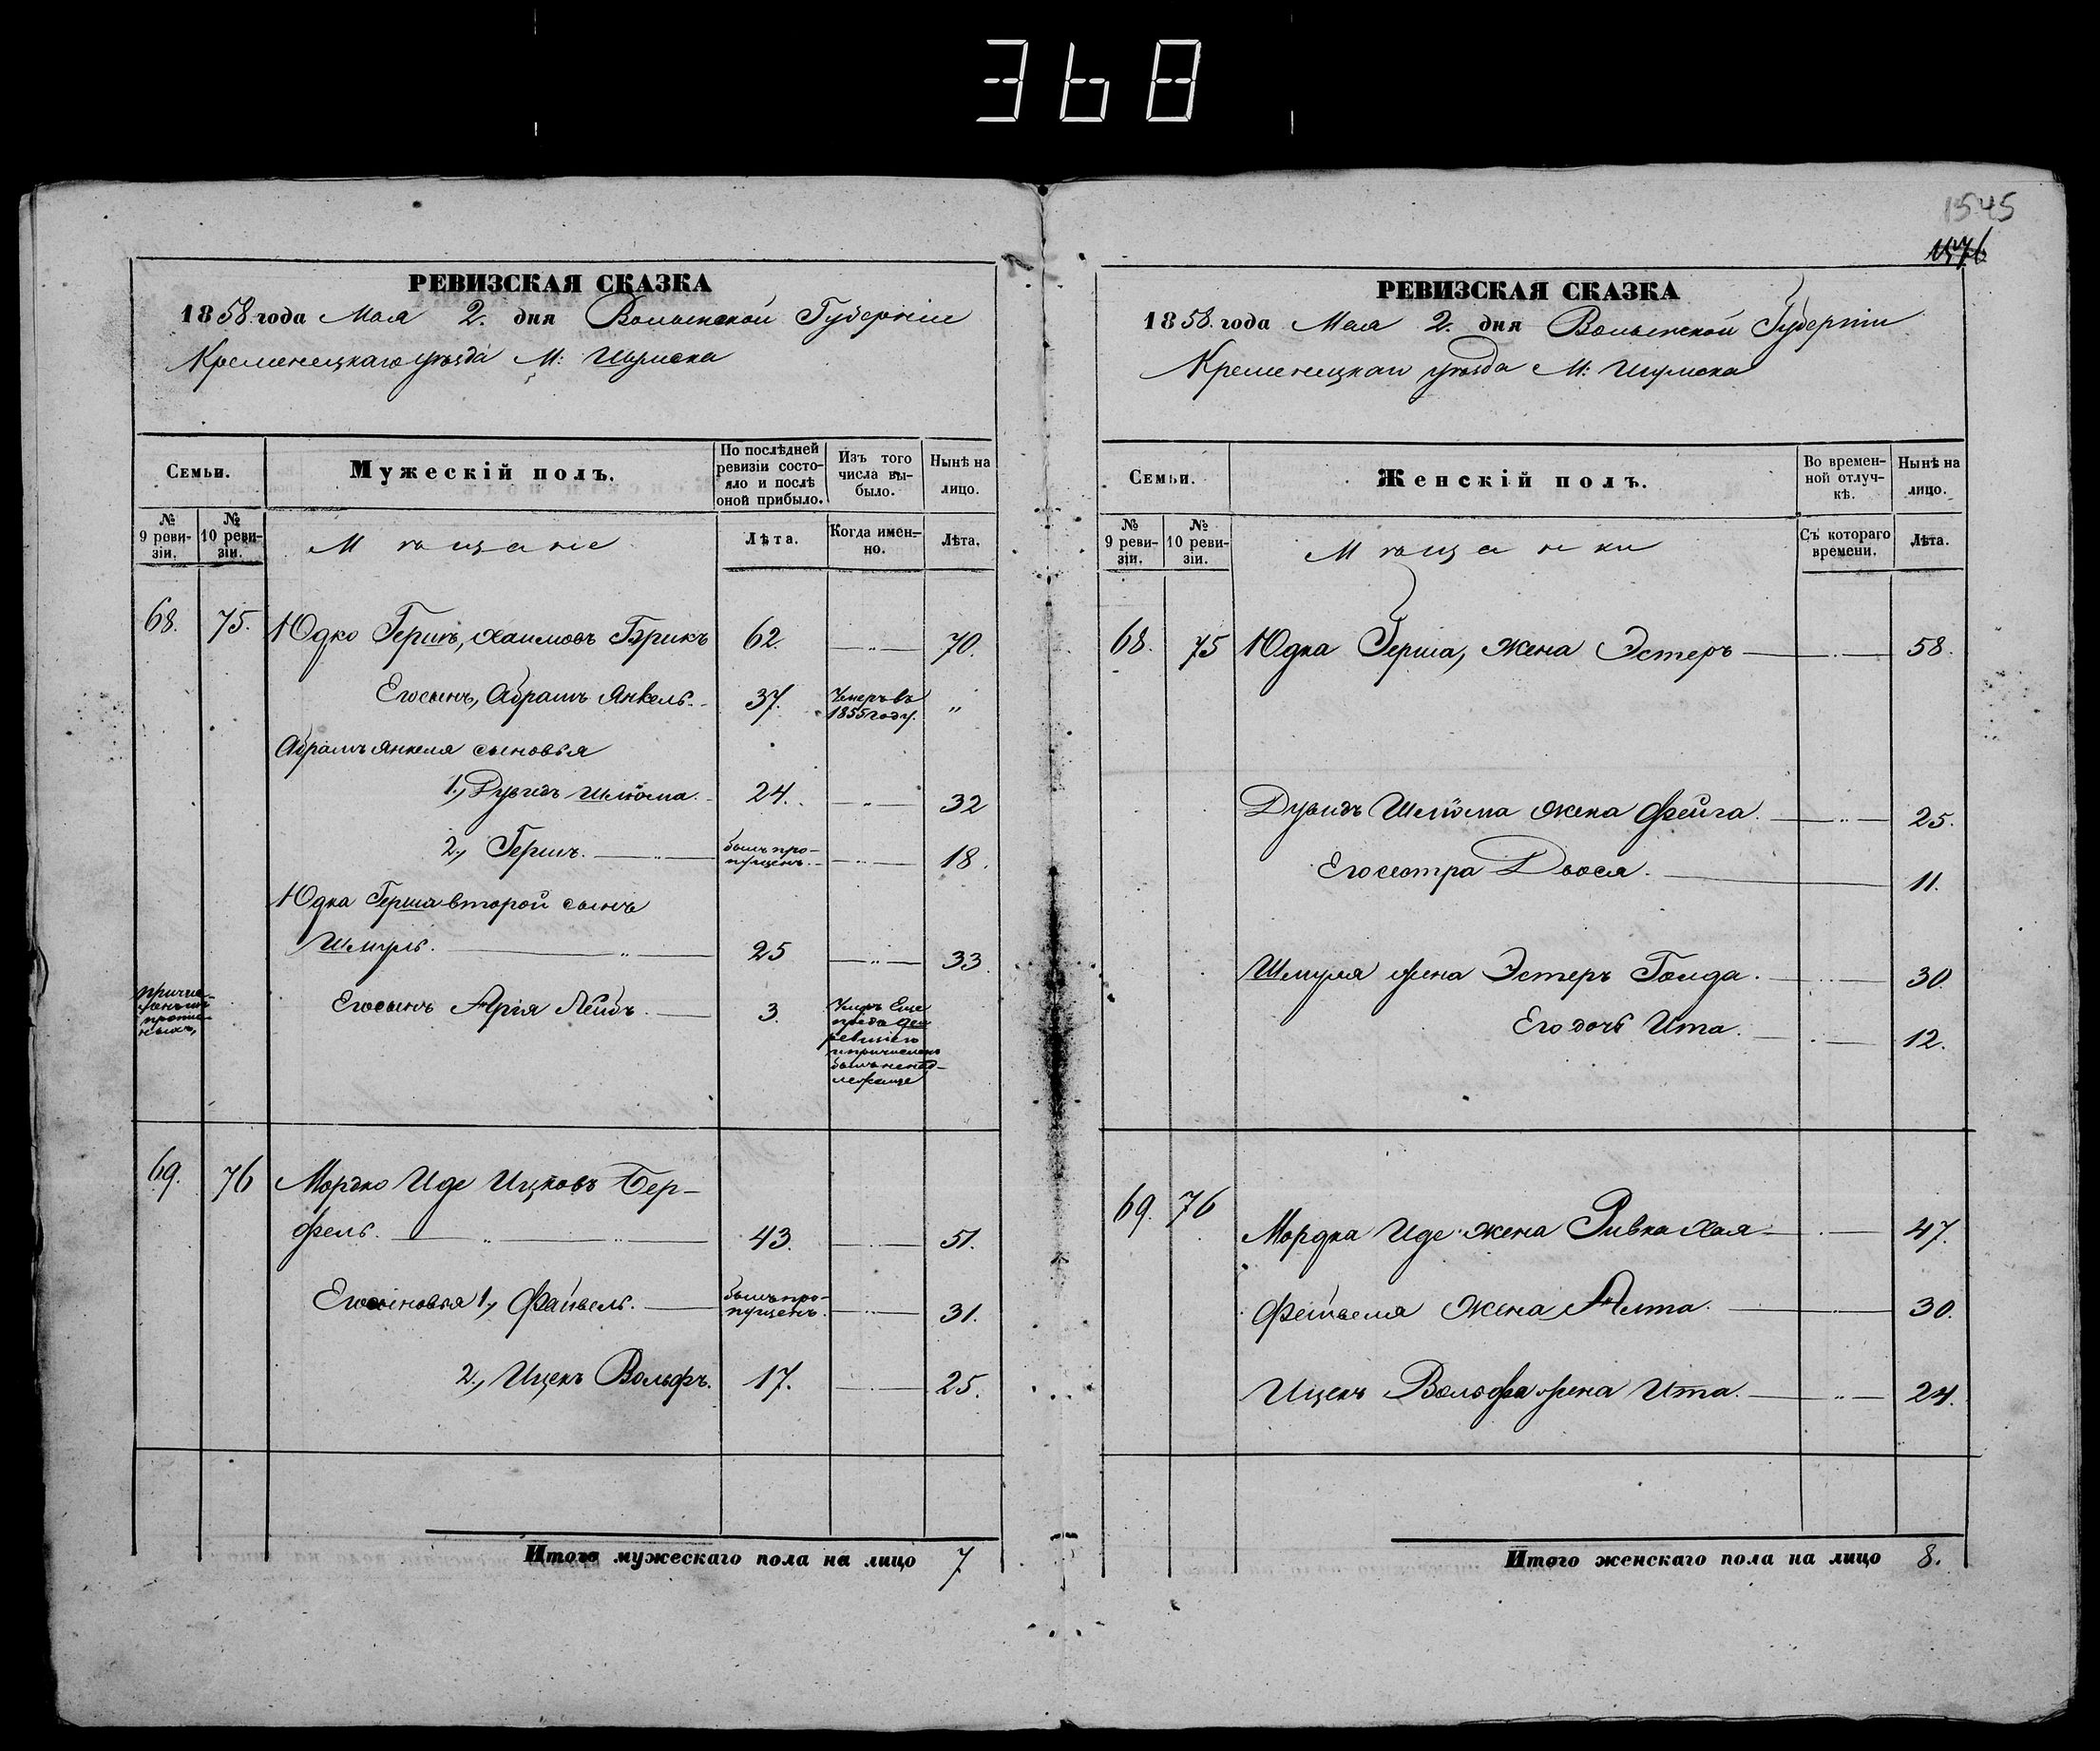 368
1545
1576
РЕВИЗСКАЯ СКАЗКА
1858 года Мая 2. дня Волынской Губерніи
Кременецкаго уѣзда М: Шумска
Семьи.
Мужескій полъ.
По послѣдней ревизіи состояло и послѣ оной прибыло.
Изъ того числа выбыло.
Нынѣ на лицо.
№ 9 ревизіи.
№ 10 ревизіи.
Мѣщане
Лѣта.
Когда именно.
Лѣта.
68. 75. Юдко Гершъ, Хаимовъ Брикъ 62. —„— 70.
Его сынъ, Абрамъ Янкель. 37. Умеръ въ 1855 году. „
Абрамъ Янкеля сыновья
1., Дувидъ Шліома. 24. —„— 32
2., Гершъ. былъ пропущенъ. —„— 18.
Юдка Герша второй сынъ
Шмуль. 25 —„— 33.
Его сынъ Арія Лейбъ. 3. Умеръ Еще
ревизіею
69. 76 Мордко Иде Ицковъ Бер-
фель. 43. —„— 51.
Его сыновья 1., Файвель. былъ пропущенъ. —„— 31.
2., Ицекъ Вольфъ. 17. —„— 25.
Итого мужескаго пола на лицо 7.
РЕВИЗСКАЯ СКАЗКА
1858. года Мая 2. дня Волынской Губерніи
Кременецкаго уѣзда М: Шумска
Семьи.
Женскій полъ.
Во временной отлучкѣ.
Нынѣ на лицо.
№ 9 ревизіи.
№ 10 ревизіи.
Мѣщанки
Съ котораго времени.
Лѣта.
68. 75 Юдка Герша, жена Эстеръ —„— 58.
Дувидъ Шліома жена Фейга. —„— 25.
Его сестра Двося. 11.
Шмуля жена Эстеръ Голда. —„— 30.
Его дочь Ита. —„— 12.
69. 76
Мордка Иде жена Ривка Хая —„— 47.
Фейвеля жена Алта. —„— 30.
Ицекъ Вольфа жена Ита. —„— 24.
Итого женскаго пола на лицо 8.